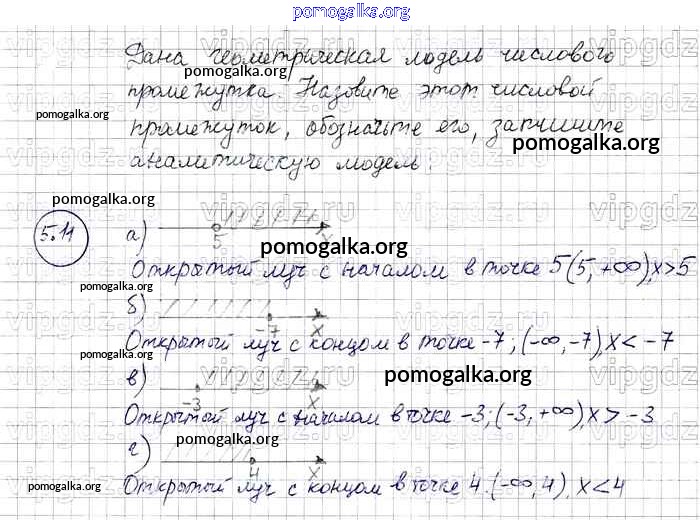 pomogalka.org
Дана геометрическая модель числового
pomogalka.org
промежутка. Назовите этот числовой
pomogalka.org
промежуток, обозначьте его, запишите
pomogalka.org
аналитическую модель.
pomogalka.org
5.11
а)
5
x
pomogalka.org
Открытый луч с началом в точке 5 (5, +∞), x>5
pomogalka.org
б)
-7
x
Открытый луч с концом в точке -7; (-∞, -7), x < -7
pomogalka.org
в)
-3
x
pomogalka.org
Открытый луч с началом в точке -3; (-3, +∞), x > -3
г)
pomogalka.org
4
x
pomogalka.org
Открытый луч с концом в точке 4. (-∞, 4), x < 4
pomogalka.org